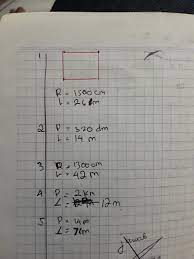 1
P = 1500 cm
L = 26 dm
2 P = 320 dm
L = 14 m
3 P = 1300 cm
L = 42 m
4 P = 2 km
L = 12 m
5 P =
L = 7 m